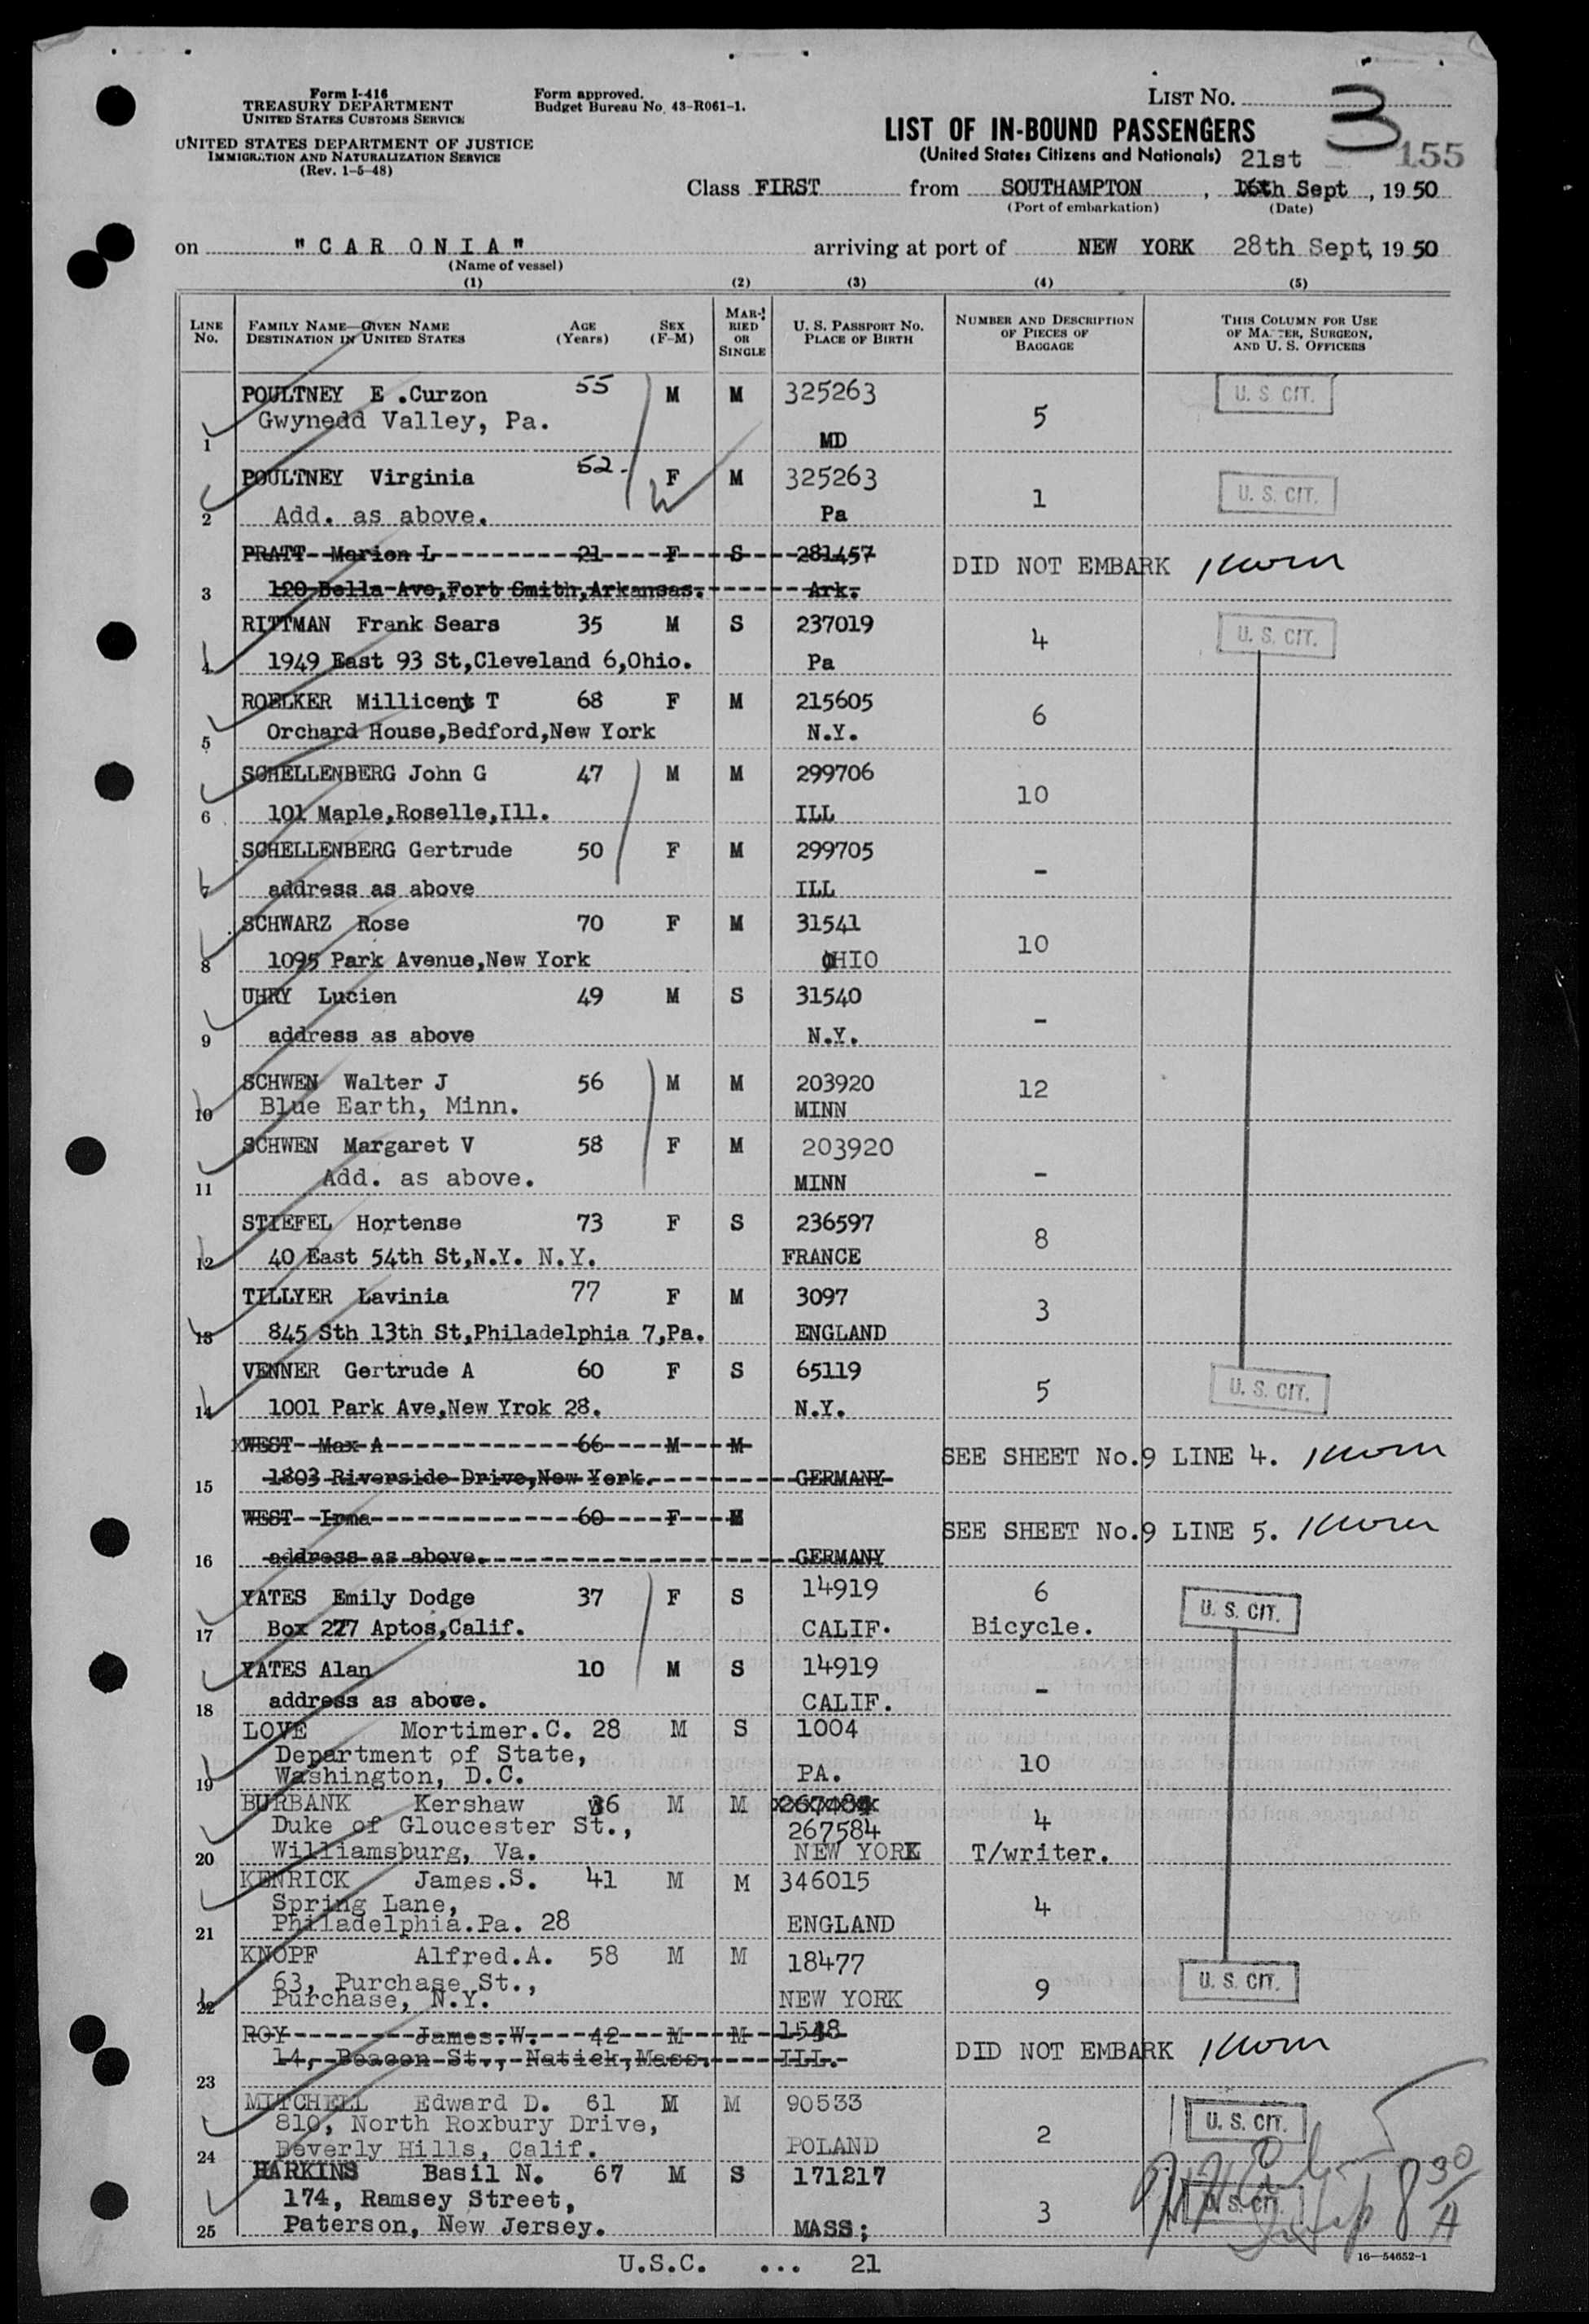 Form I-416
TREASURY DEPARTMENT
UNITED STATES CUSTOMS SERVICE
UNITED STATES DEPARTMENT OF JUSTICE
IMMIGRATION AND NATURALIZATION SERVICE
(Rev. 1-5-48)
Form approved.
Budget Bureau No. 43-R061-1.
LIST NO. 3
LIST OF IN-BOUND PASSENGERS
(United States Citizens and Nationals) 21st 155
Class FIRST from SOUTHAMPTON, 16th Sept, 1950
(Port of embarkation) (Date)
on "CARONIA" arriving at port of NEW YORK 28th Sept, 1950
(Name of vessel)
(1) (2) (3) (4) (5)
LINE No. FAMILY NAME—GIVEN NAME DESTINATION IN UNITED STATES AGE (Years) SEX (F-M) MARRIED OR SINGLE U. S. PASSPORT NO. PLACE OF BIRTH NUMBER AND DESCRIPTION OF PIECES OF BAGGAGE THIS COLUMN FOR USE OF MASTER, SURGEON, AND U. S. OFFICERS
POULTNEY E .Curzon 55 M M 325263 5 U. S. CIT.
1 Gwynedd Valley, Pa. MD
POULTNEY Virginia 52- F M 325263 1 U. S. CIT.
2 Add. as above. Pa
PRATT Marion L 21 F S 281457 DID NOT EMBARK
3 120 Bella Ave,Fort Smith,Arkansas. Ark.
RITTMAN Frank Sears 35 M S 237019 4 U. S. CIT.
4 1949 East 93 St,Cleveland 6,Ohio. Pa
ROELKER Millicent T 68 F M 215605 6
5 Orchard House,Bedford,New York N.Y.
SCHELLENBERG John G 47 M M 299706 10
6 101 Maple,Roselle,Ill. ILL
SCHELLENBERG Gertrude 50 F M 299705 -
7 address as above ILL
SCHWARZ Rose 70 F M 31541 10
8 1095 Park Avenue,New York OHIO
UHRY Lucien 49 M S 31540 -
9 address as above N.Y.
SCHWEN Walter J 56 M M 203920 12
10 Blue Earth, Minn. MINN
SCHWEN Margaret V 58 F M 203920 -
11 Add. as above. MINN
STIEFEL Hortense 73 F S 236597 8
12 40 East 54th St,N.Y. N.Y. FRANCE
TILLYER Lavinia 77 F M 3097 3
13 845 Sth 13th St,Philadelphia 7,Pa. ENGLAND
VENNER Gertrude A 60 F S 65119 5 U. S. CIT.
14 1001 Park Ave,New Yrok 28. N.Y.
WEST Max A 66 M M SEE SHEET No.9 LINE 4.
15 1803 Riverside Drive,New York. GERMANY
WEST Irma 60 F M SEE SHEET No.9 LINE 5.
16 address as above. GERMANY
YATES Emily Dodge 37 F S 14919 6 U. S. CIT.
17 Box 227 Aptos,Calif. CALIF. Bicycle.
YATES Alan 10 M S 14919 -
18 address as above. CALIF.
LOVE Mortimer.C. 28 M S 1004 10
Department of State,
19 Washington, D.C. PA.
BURBANK Kershaw 36 M M 267484 4
Duke of Gloucester St., 267584
20 Williamsburg, Va. NEW YORK T/writer.
KENRICK James.S. 41 M M 346015 4
Spring Lane,
21 Philadelphia.Pa. 28 ENGLAND
KNOPF Alfred.A. 58 M M 18477 9 U. S. CIT.
63, Purchase St.,
22 Purchase, N.Y. NEW YORK
ROY James.W. 42 M M 1548 DID NOT EMBARK
14, Beacon St., Natick,Mass. ILL.
23
MITCHELL Edward D. 61 M M 90533 2 U. S. CIT.
810, North Roxbury Drive,
24 Beverly Hills, Calif. POLAND
HARKINS Basil N. 67 M S 171217 3 U. S. CIT.
174, Ramsey Street,
25 Paterson, New Jersey. MASS;
U.S.C. ... 21
16—54652-1